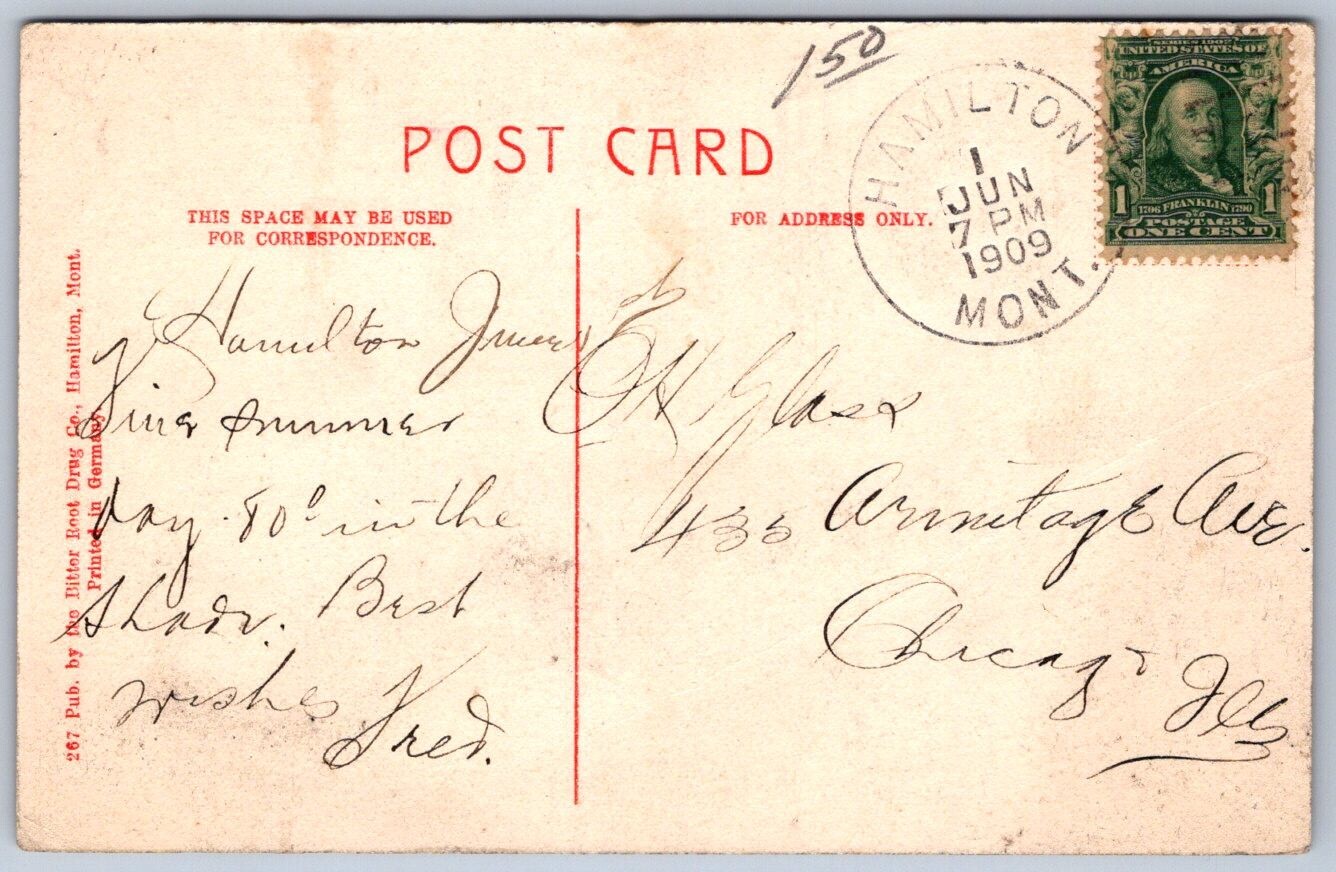 150
POST CARD
HAMILTON
1
JUN
7 PM
1909
MONT.
SERIES 1902
UNITED STATES OF
AMERICA
1 1706 FRANKLIN 1790 1
POSTAGE
ONE CENT
THIS SPACE MAY BE USED
FOR CORRESPONDENCE.
FOR ADDRESS ONLY.
267 Pub. by the Bitter Root Drug Co., Hamilton, Mont.
Printed in Germany.
Hamilton
Fine summer
day. 80° in the
Shade. Best
wishes Fred.
Glass
435 Armitage Ave.
Chicago Ills